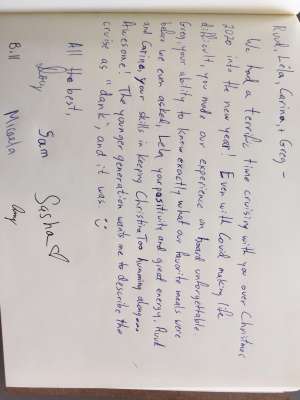 Rud, Lela, Carina, + Greg -
We had a terrific time cruising with you over Christmas
2020 into the new year! Even with Covid making life
difficult, you made our experience on board unforgettable.
Greg your ability to know exactly what our favorite meals were
before we even asked, Lela your positivity and great energy, Rurd
and Carina your skills in keeping Christina Too humming along...
Awesome! The younger generation wants me to describe the
cruise as "dank", and it was :)
All the best,
Sam
Sasha ♡
Bill
Micaela